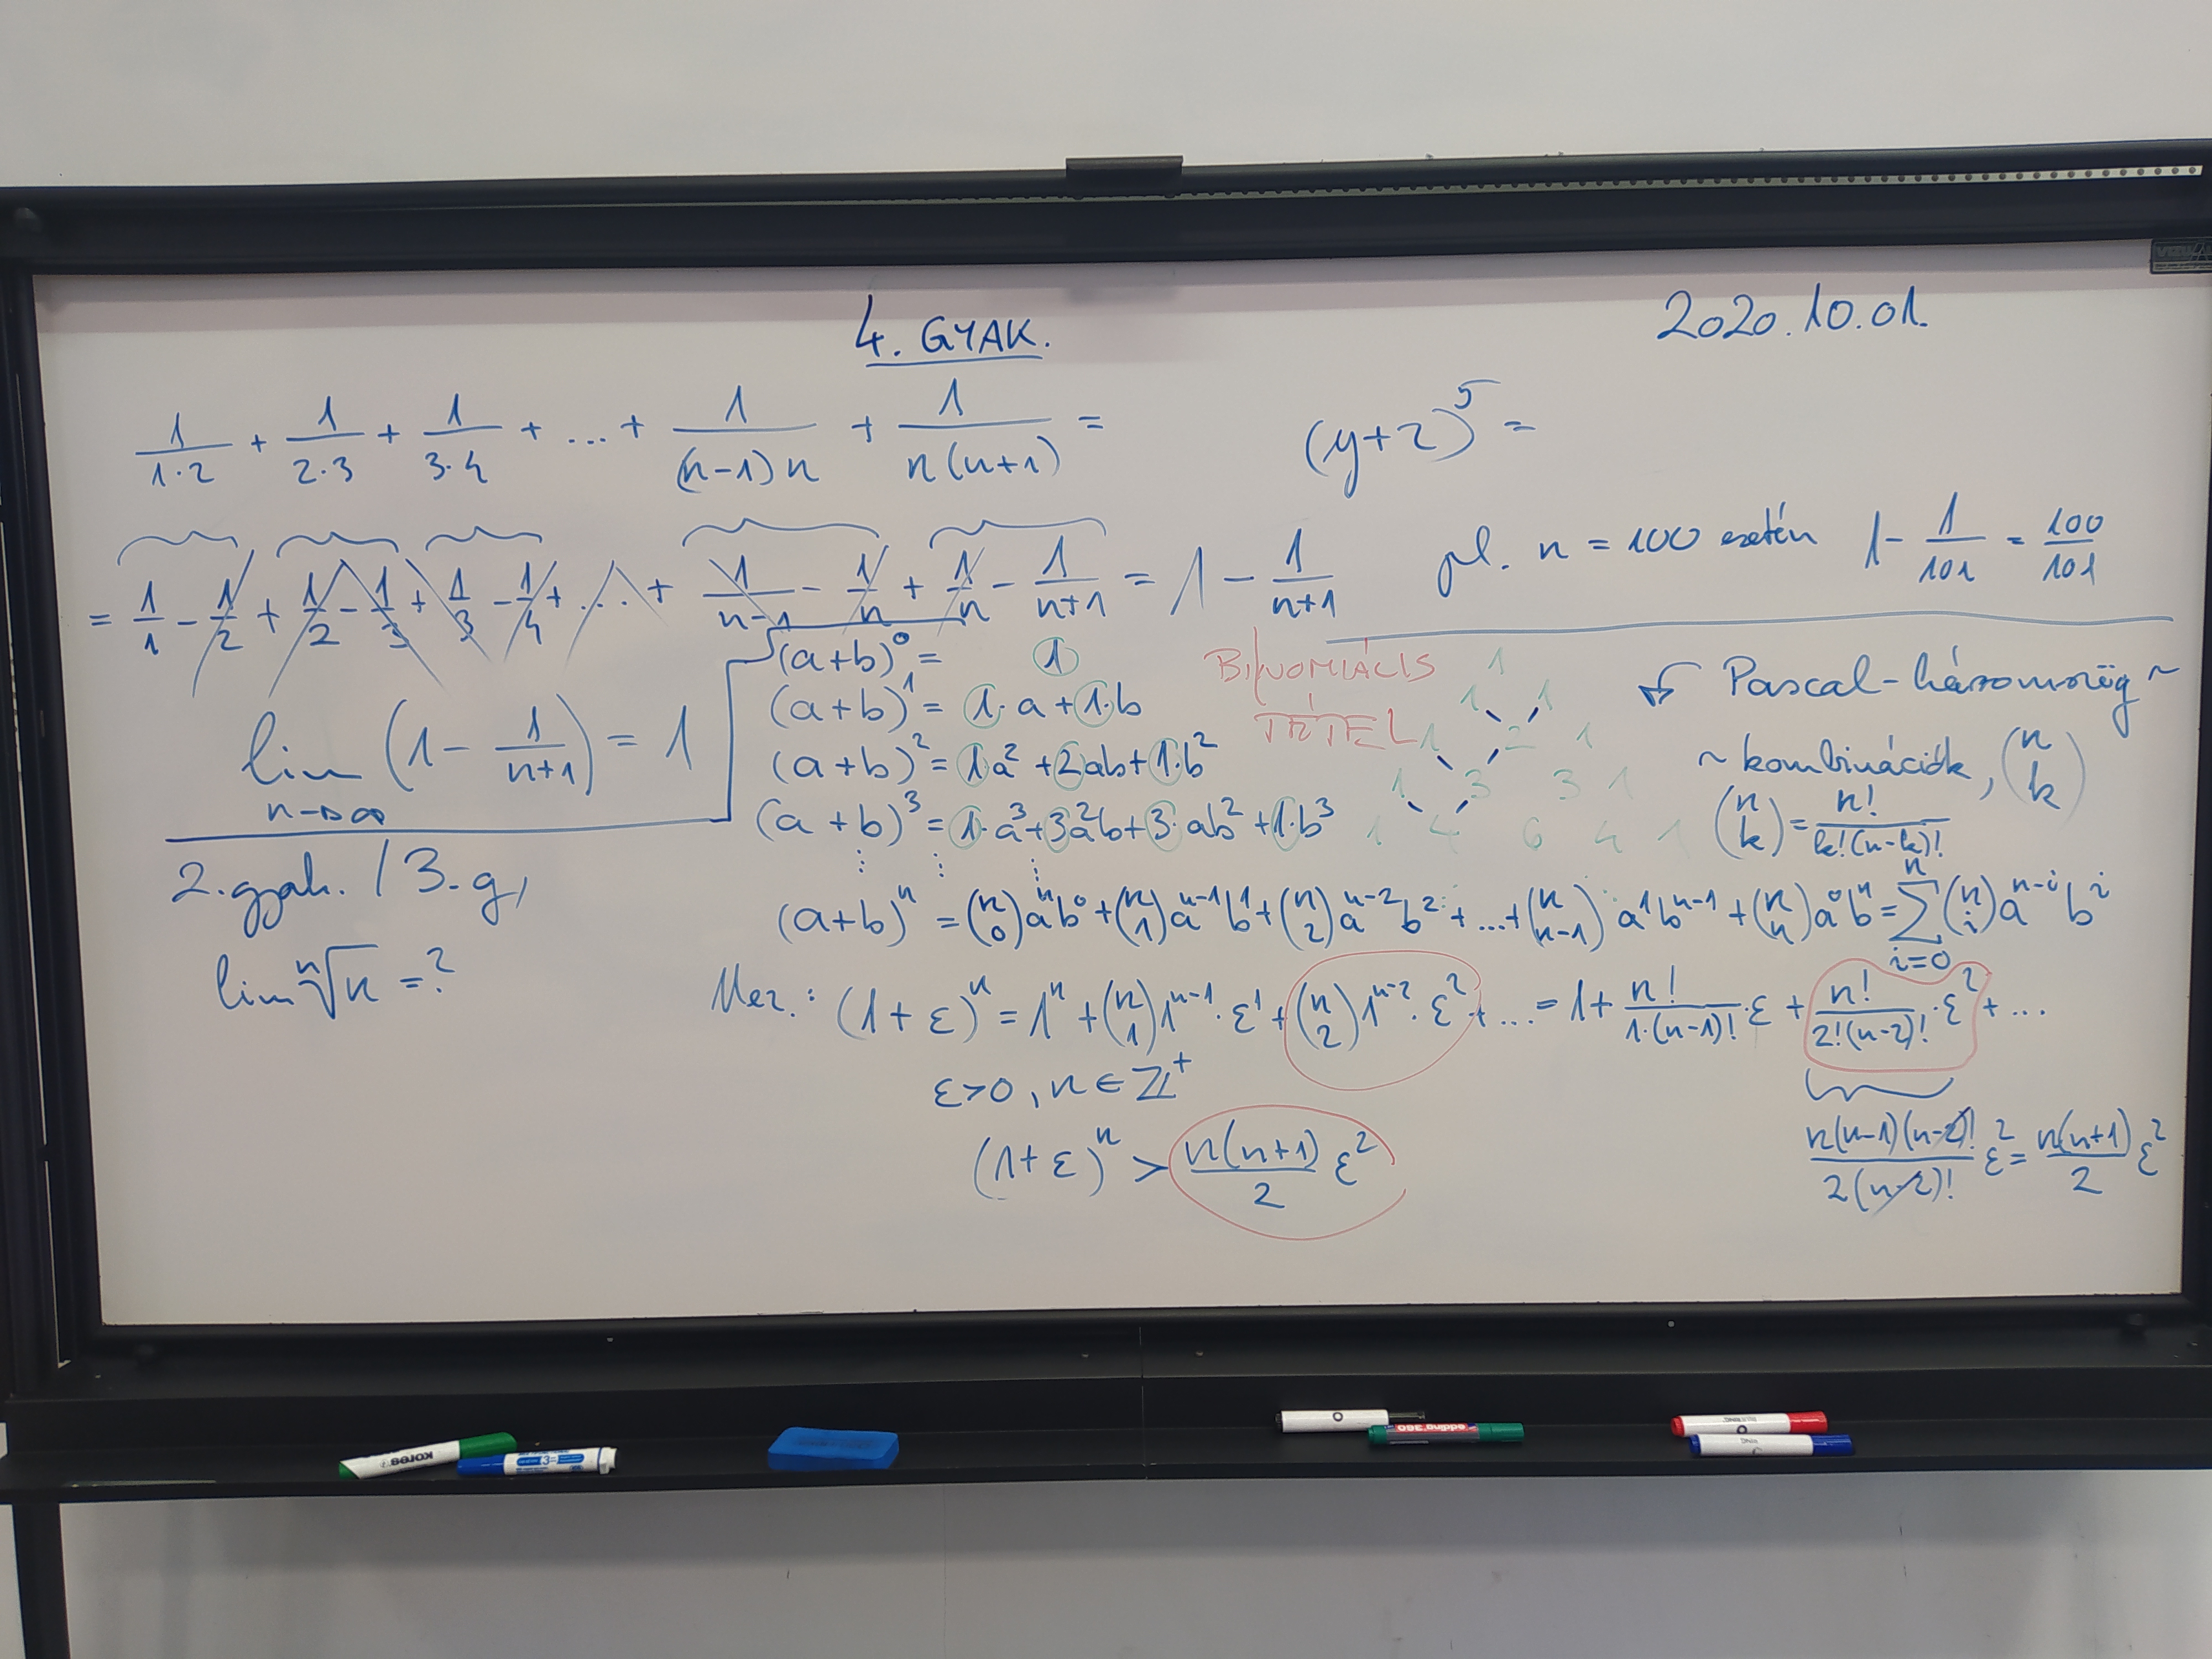 4. GYAK.
2020.10.01.
1/(1·2) + 1/(2·3) + 1/(3·4) + ... + 1/((n-1)n) + 1/(n(n+1)) =
(y+z)⁵ =
= 1/1 - 1/2 + 1/2 - 1/3 + 1/3 - 1/4 + ... + 1/(n-1) - 1/n + 1/n - 1/(n+1) = 1 - 1/(n+1)
pl. n = 100 esetén 1 - 1/101 = 100/101
lim n→∞ (1 - 1/(n+1)) = 1
2. gyak. / 3. g,
lim ⁿ√n = ?
(a+b)⁰ = 1
(a+b)¹ = 1·a + 1·b
(a+b)² = 1·a² + 2ab + 1·b²
(a+b)³ = 1·a³ + 3a²b + 3·ab² + 1·b³
BINOMIÁLIS
TÉTEL
1
1 1
1 2 1
1 3 3 1
1 4 6 4 1
Pascal-háromszög ~
~ kombinációk, (n k)
(n k) = n!/(k!(n-k)!)
(a+b)ⁿ = (n 0)aⁿb⁰ + (n 1)aⁿ⁻¹b¹ + (n 2)aⁿ⁻²b² + ... + (n n-1)a¹bⁿ⁻¹ + (n n)a⁰bⁿ = Σ i=0 n (n i)aⁿ⁻ⁱbⁱ
Mez.: (1+ε)ⁿ = 1ⁿ + (n 1)1ⁿ⁻¹·ε¹ + (n 2)1ⁿ⁻²·ε² + ... = 1 + n!/(1·(n-1)!)·ε + n!/(2!(n-2)!)·ε² + ...
ε>0, n ∈ ℤ⁺
n(n-1)(n-2)!/(2(n-2)!) ε² = n(n+1)/2 ε²
(1+ε)ⁿ > n(n+1)/2 ε²
kores
edding 360